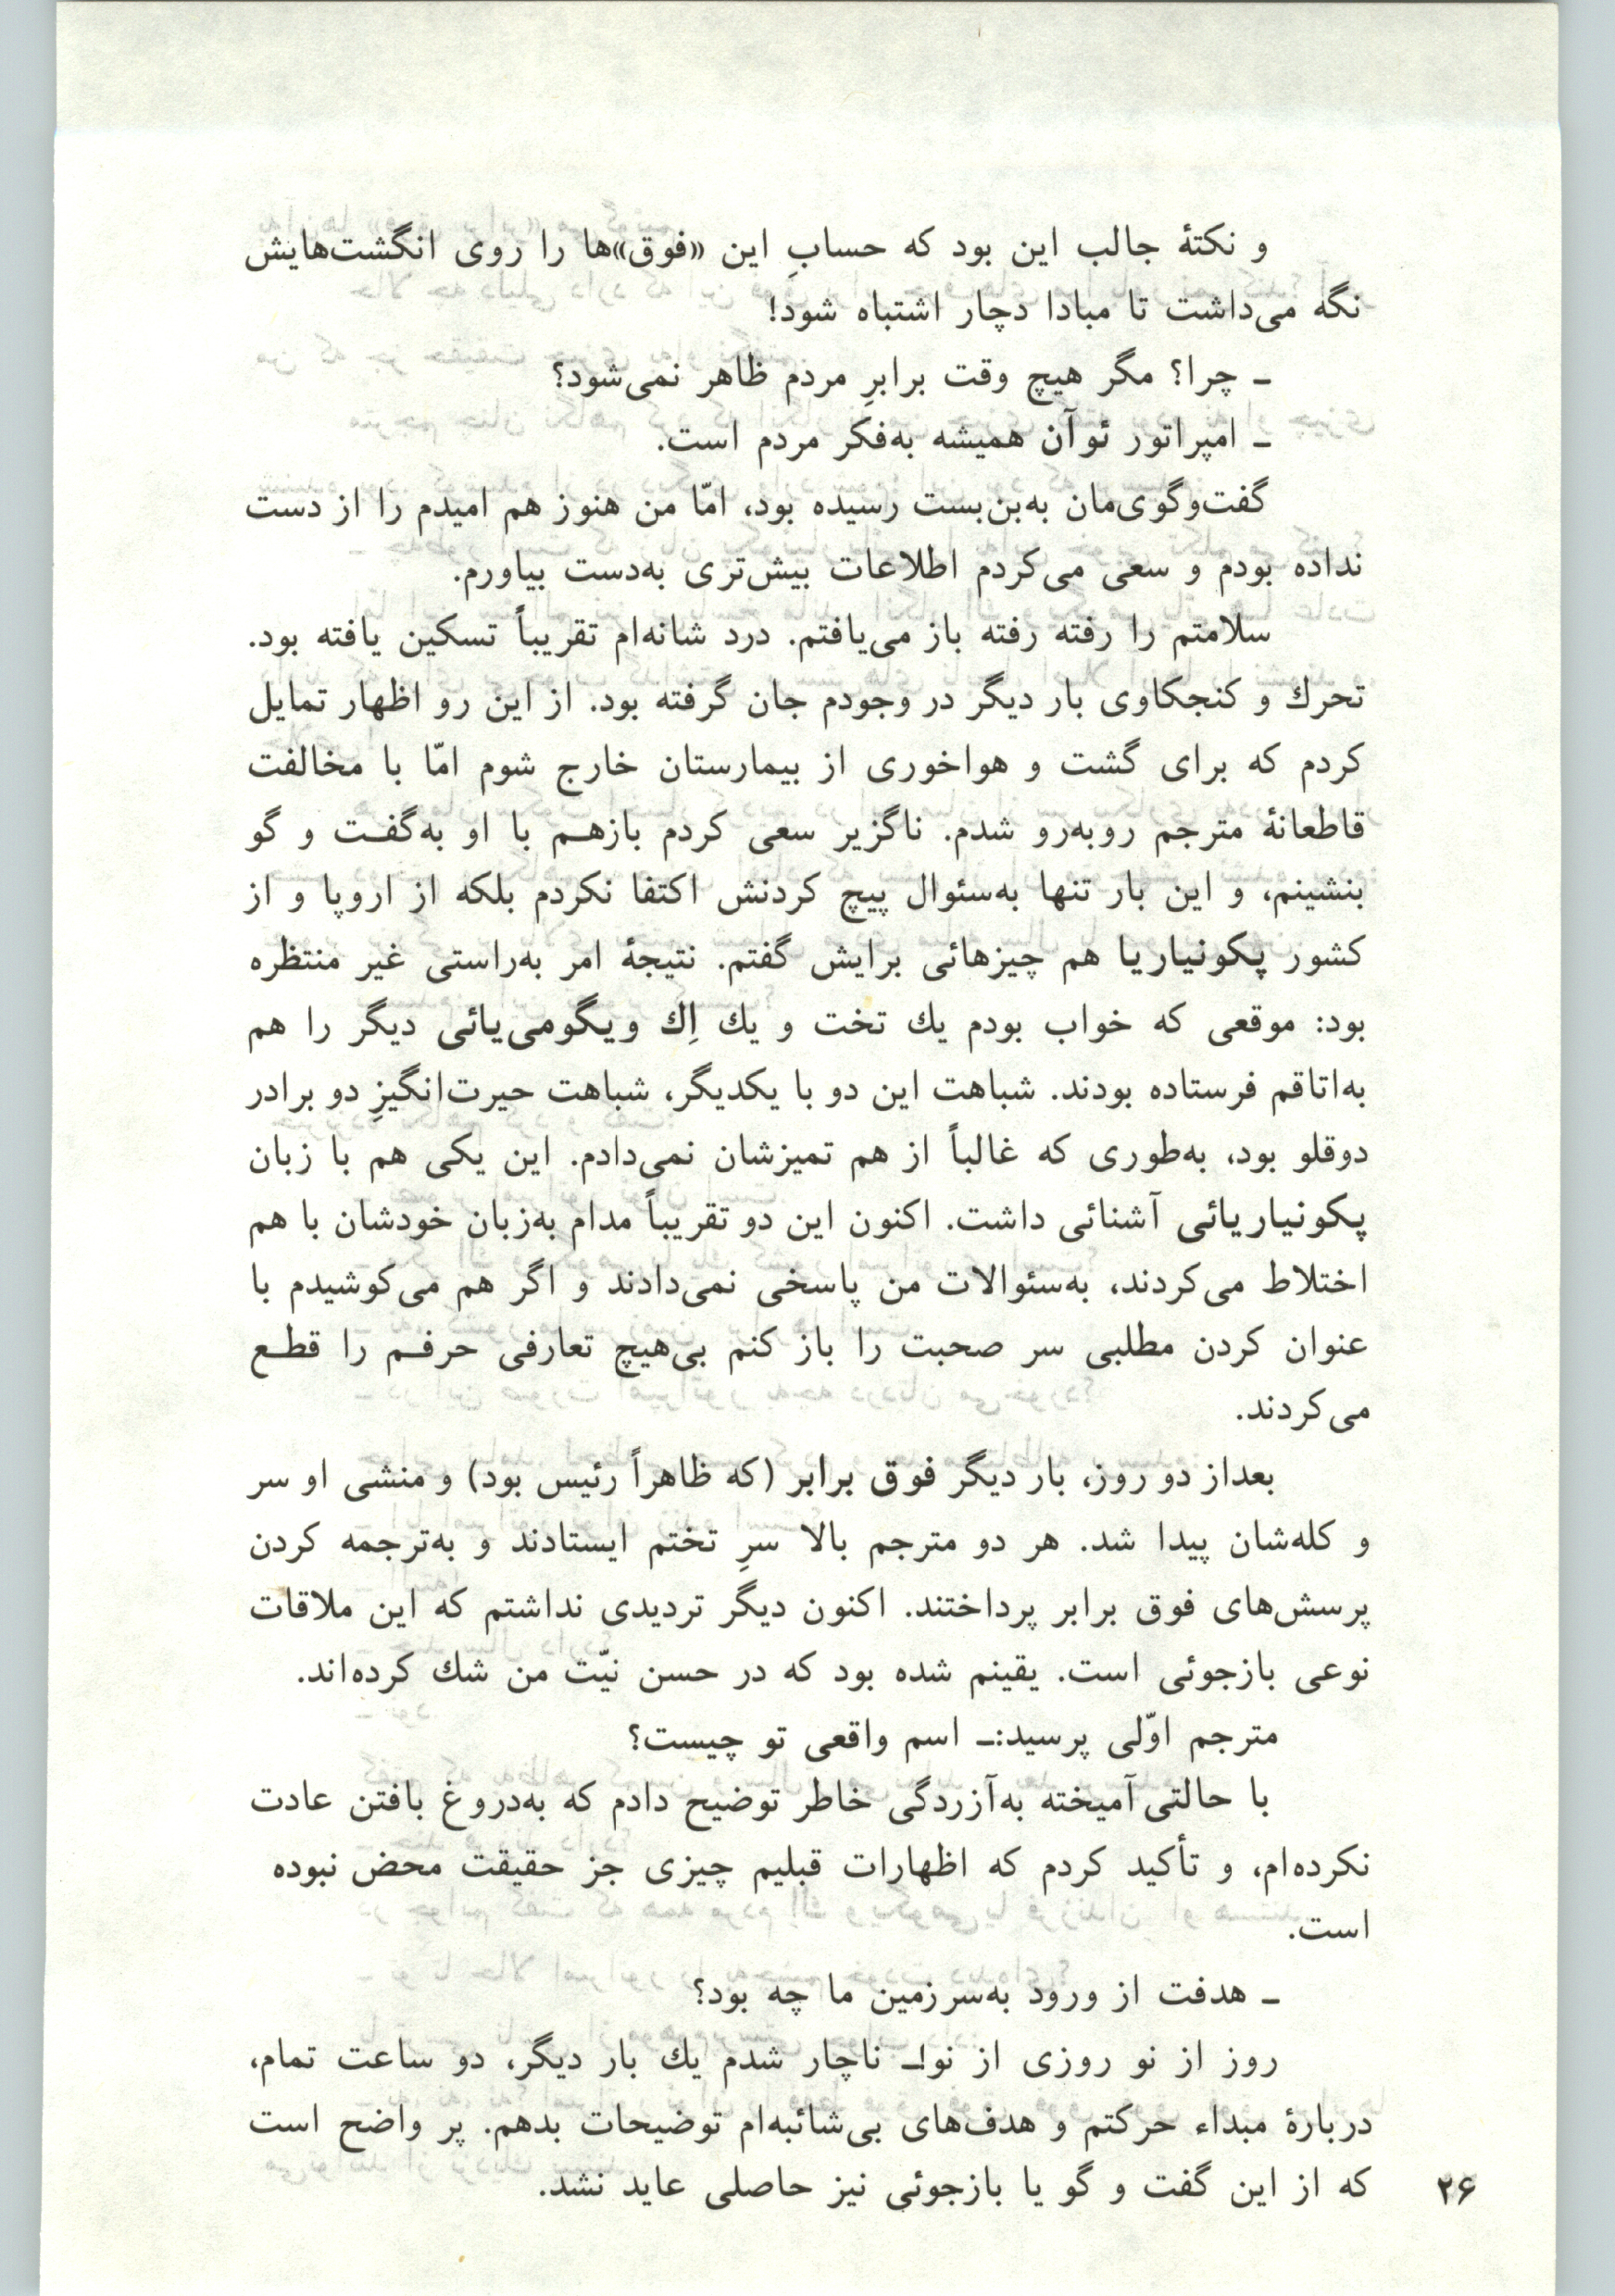 و نکتهٔ جالب این بود که حسابِ این «فوق»ها را روی انگشت‌هایش
نگه می‌داشت تا مبادا دچار اشتباه شود!
ـ چرا؟ مگر هیچ وقت برابرِ مردم ظاهر نمی‌شود؟
ـ امپراتور ئوآن همیشه به‌فکر مردم است.
گفت‌وگوی‌مان به‌بن‌بست رسیده بود، امّا من هنوز هم امیدم را از دست
نداده بودم و سعی می‌کردم اطلاعات بیش‌تری به‌دست بیاورم.
سلامتم را رفته رفته باز می‌یافتم. درد شانه‌ام تقریباً تسکین یافته بود.
تحرك و کنجکاوی بار دیگر در وجودم جان گرفته بود. از این رو اظهار تمایل
کردم که برای گشت و هواخوری از بیمارستان خارج شوم امّا با مخالفت
قاطعانهٔ مترجم روبه‌رو شدم. ناگزیر سعی کردم بازهـم با او به‌گفـت و گو
بنشینم، و این بار تنها به‌سئوال پیچ کردنش اکتفا نکردم بلکه از اروپا و از
کشور پکونیاریا هم چیزهائی برایش گفتم. نتیجهٔ امر به‌راستی غیر منتظره
بود: موقعی که خواب بودم یك تخت و یك اِك ویگومی‌یائی دیگر را هم
به‌اتاقم فرستاده بودند. شباهت این دو با یکدیگر، شباهت حیرت‌انگیزِ دو برادر
دوقلو بود، به‌طوری که غالباً از هم تمیزشان نمی‌دادم. این یکی هم با زبان
پکونیاریائی آشنائی داشت. اکنون این دو تقریباً مدام به‌زبان خودشان با هم
اختلاط می‌کردند، به‌سئوالات من پاسخی نمی‌دادند و اگر هم می‌کوشیدم با
عنوان کردن مطلبی سر صحبت را باز کنم بی‌هیچ تعارفی حرفـم را قطـع
می‌کردند.
بعداز دو روز، بار دیگر فوق برابر (که ظاهراً رئیس بود) و منشی او سر
و کله‌شان پیدا شد. هر دو مترجم بالا سرِ تختم ایستادند و به‌ترجمه کردن
پرسش‌های فوق برابر پرداختند. اکنون دیگر تردیدی نداشتم که این ملاقات
نوعی بازجوئی است. یقینم شده بود که در حسن نیّت من شك کرده‌اند.
مترجم اوّلی پرسید:ـ اسم واقعی تو چیست؟
با حالتی آمیخته به‌آزردگی خاطر توضیح دادم که به‌دروغ بافتن عادت
نکرده‌ام، و تأکید کردم که اظهارات قبلیم چیزی جز حقیقت محض نبوده
است.
ـ هدفت از ورود به‌سرزمین ما چه بود؟
روز از نو روزی از نو!ـ ناچار شدم یك بار دیگر، دو ساعت تمام،
دربارهٔ مبداء حرکتم و هدف‌های بی‌شائبه‌ام توضیحات بدهم. پر واضح است
که از این گفت و گو یا بازجوئی نیز حاصلی عاید نشد.
۲۶